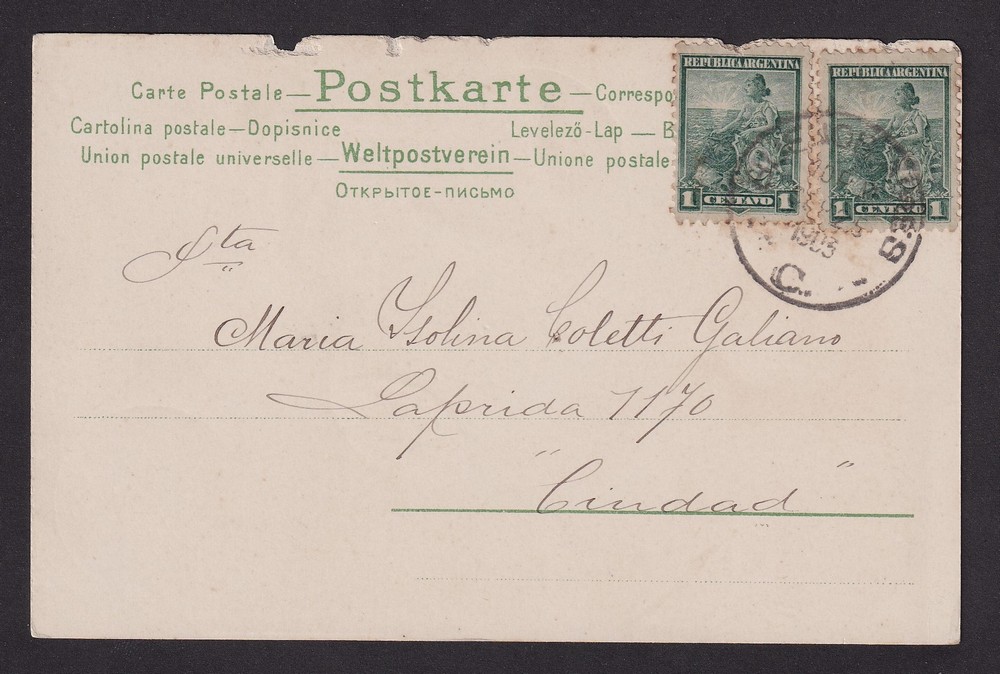 Carte Postale — Postkarte — Correspo
Cartolina postale — Dopisnice
Levelező-Lap — B
Union postale universelle — Weltpostverein — Unione postale
ОТКРЫТОЕ-ПИСЬМО
REPUBLICA ARGENTINA
1 CENTAVO 1
REPUBLICA ARGENTINA
1 CENTAVO 1
1903
Sta
Maria Isolina Coletti Galiano
Laprida 1170
"Ciudad"